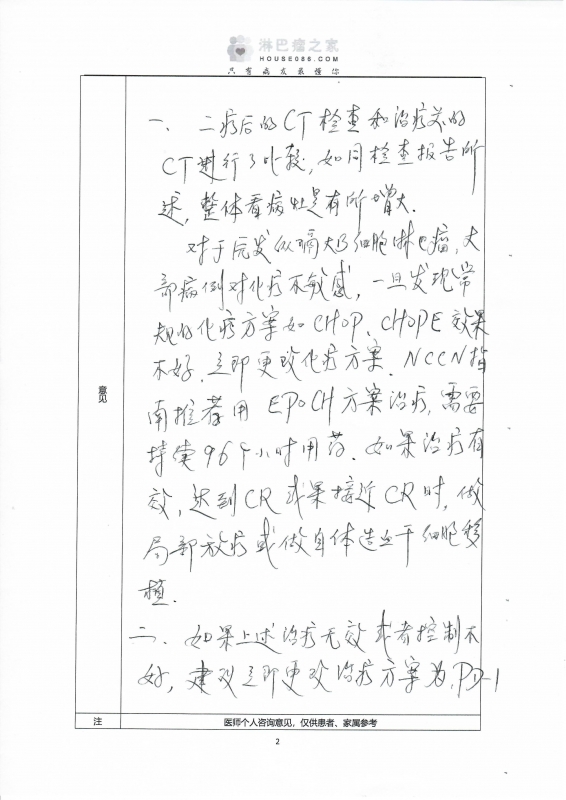 淋巴瘤之家
HOUSE086.COM
只有病友最懂你
一、二疗后的CT检查和治疗前的
CT进行了比较,如同检查报告所
述,整体看病灶是有所增大.
对于原发纵隔大B细胞淋巴瘤,大
部病例对化疗不敏感,一旦发现常
规的化疗方案如CHOP、CHOPE效果
不好,立即更改化疗方案.NCCN指
南推荐用EPOCH方案治疗,需要
持续96个小时用药.如果治疗有
效,达到CR或果接近CR时,做
局部放疗或做自体造血干细胞移
植.
二、如果上述治疗无效或者控制不
好,建议立即更改治疗方案为,PD-1
意见
注
医师个人咨询意见,仅供患者、家属参考
2